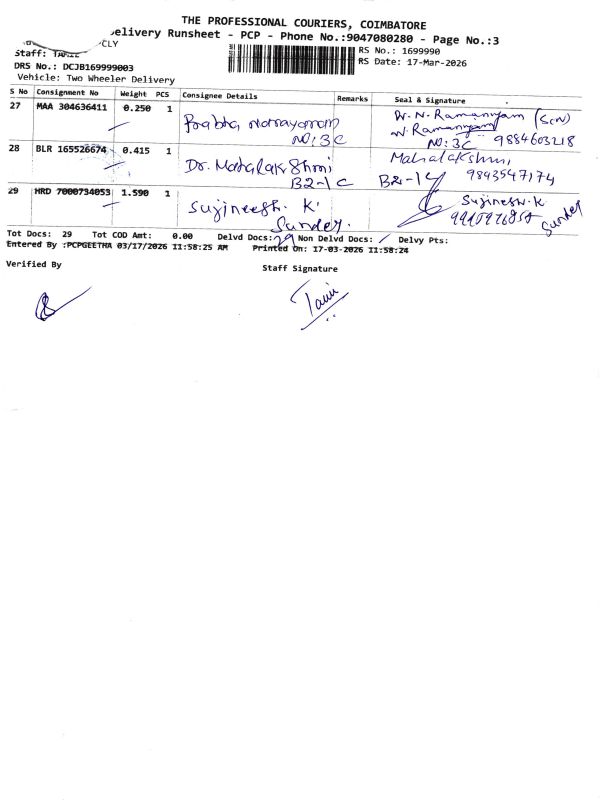 THE PROFESSIONAL COURIERS, COIMBATORE
elivery Runsheet - PCP - Phone No.:9047080280 - Page No.:3
CLY
Staff:
RS No.: 1699990
DRS No.: DCJB169999003
RS Date: 17-Mar-2026
Vehicle: Two Wheeler Delivery
S No Consignment No Weight PCS Consignee Details Remarks Seal & Signature
27 MAA 304636411 0.250 1 Prabha Narayanan W. N. Ramanujam (Son)
W. Ramanujam
NO: 3C NO: 3C 9884603218
28 BLR 165526674 0.415 1 Dr. Mahalakshmi Mahalakshmi
B2-1C B2-1C 9843547174
29 HRD 7000734053 1.590 1 Sujineesh. K Sujineesh. K
Sunder. Sunder
Tot Docs: 29 Tot COD Amt: 0.00 Delvd Docs: 29 Non Delvd Docs: / Delvy Pts:
Entered By :PCPGEETHA 03/17/2026 11:58:25 AM Printed On: 17-03-2026 11:58:24
Verified By
Staff Signature